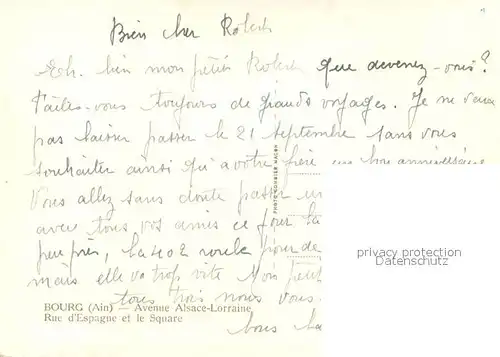 Bien cher Robert
Eh. bien mon petit Robert que devenez-vous?
Faites-vous toujours de grands voyages. Je ne veux
pas laisser passer le 21 septembre sans vous
souhaiter ainsi qu'a votre frère un bon anniversaire
Vous allez sans doute passer un
avec tous vos amis ce jour la
peu près, la 402 roule pour de
mais elle va trop vite
tous trois nous vous.
PHOTO COMBIER MACON
privacy protection
Datenschutz
BOURG (Ain) — Avenue Alsace-Lorraine
Rue d'Espagne et le Square